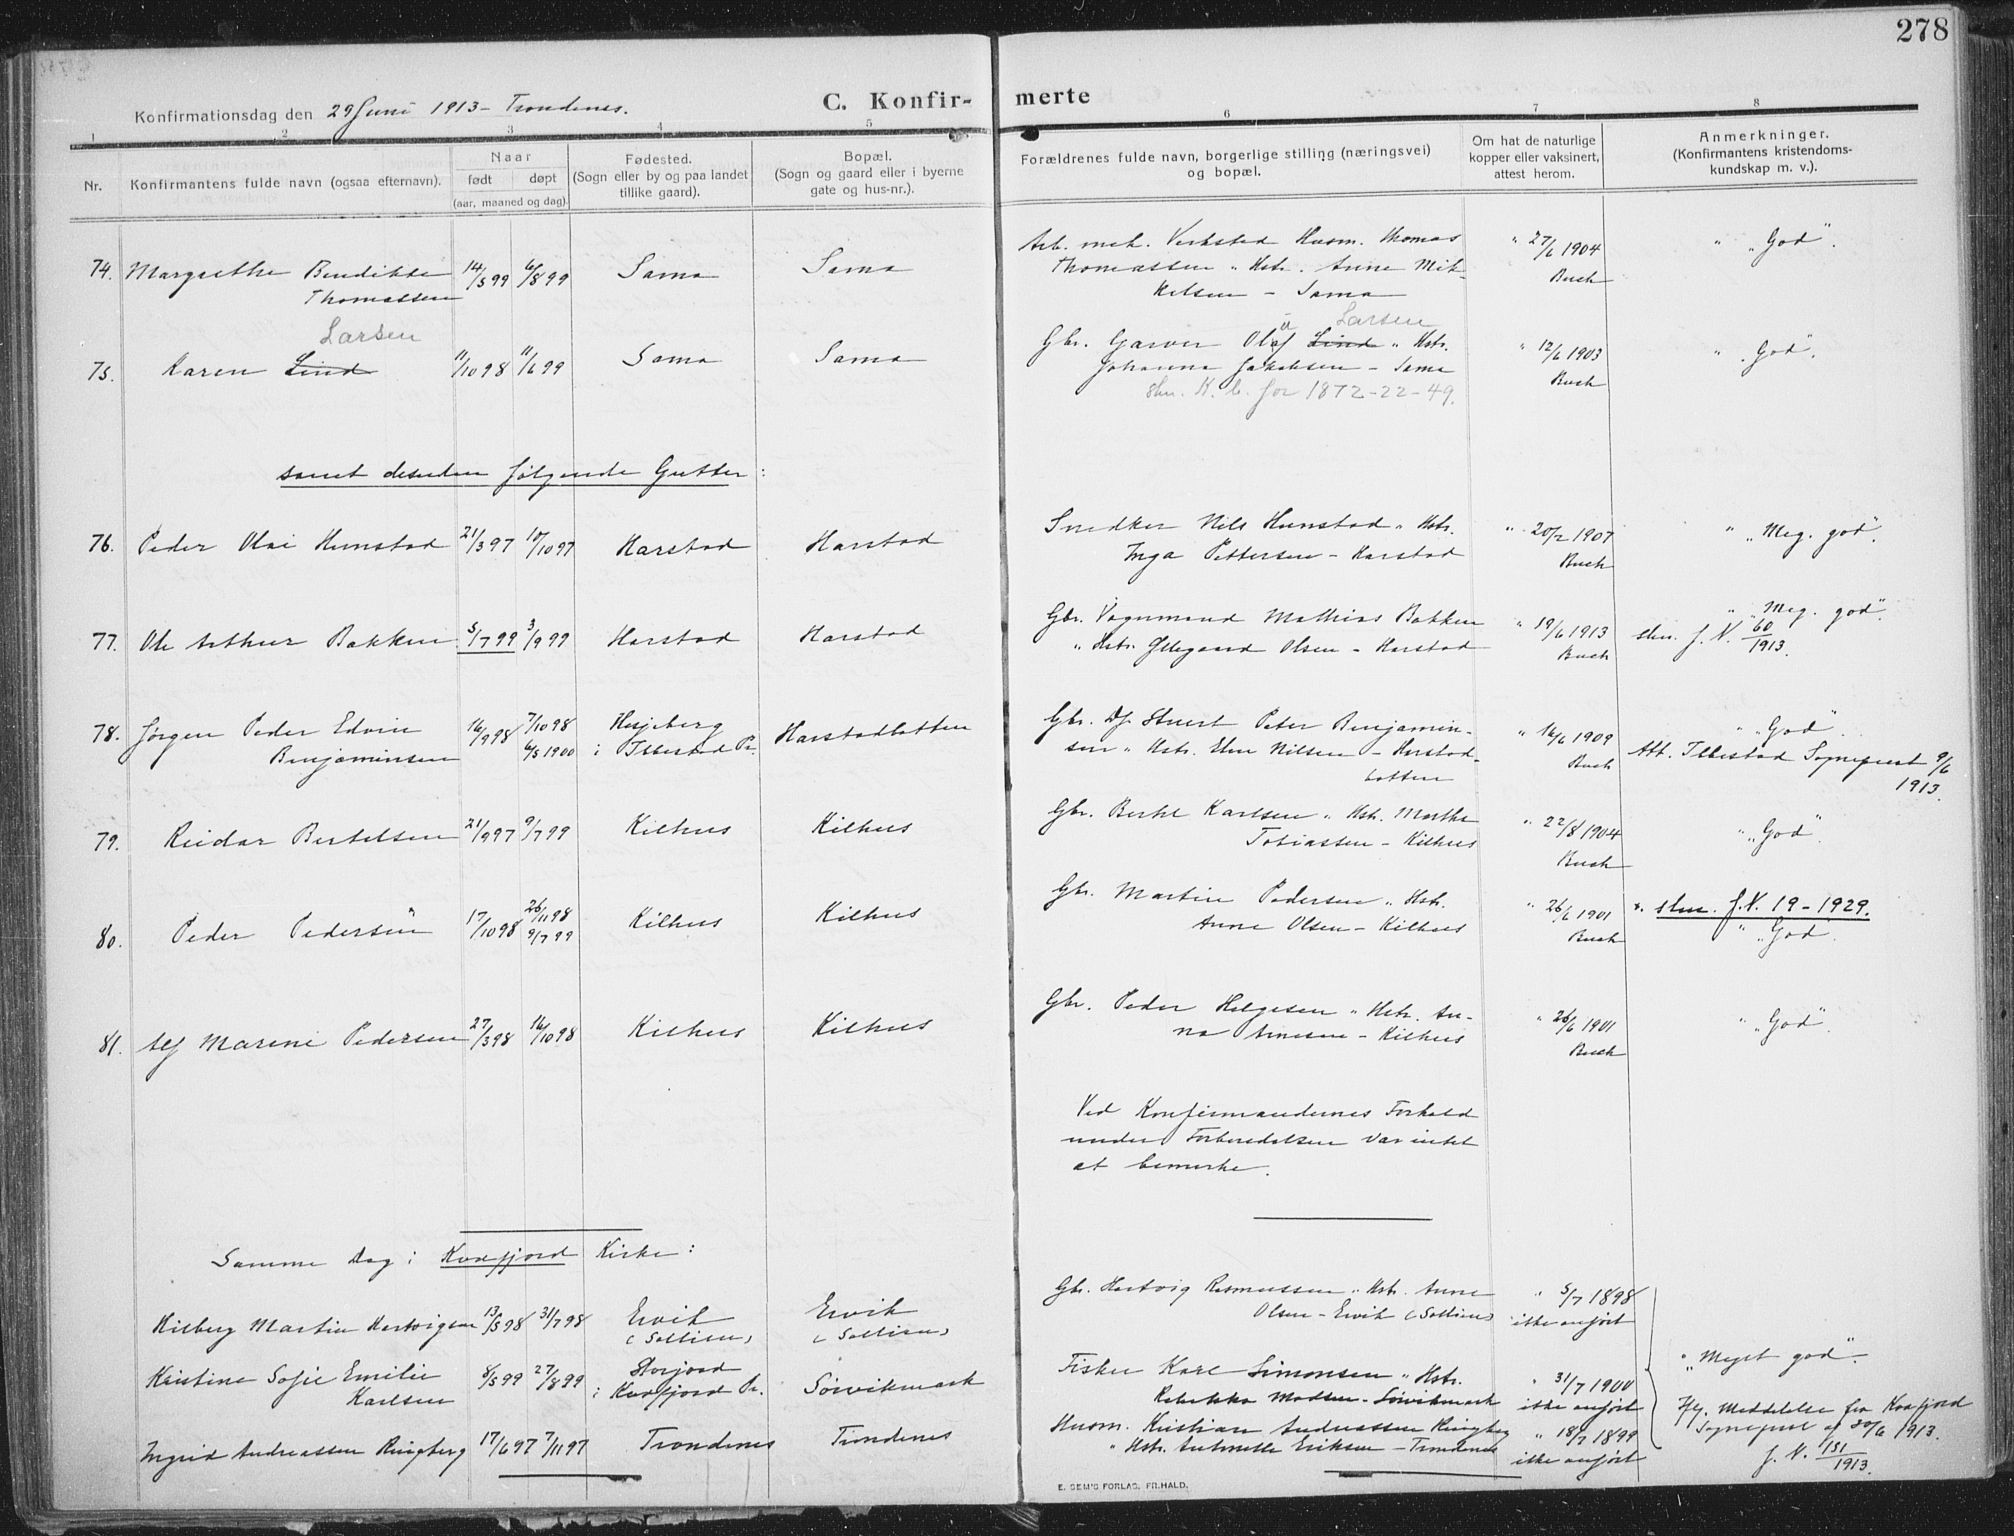 278
Konfirmationsdag den 29 Juni 1913 - Trondenes.
C. Konfir-merte
1 2 3 4 5 6 7 8
Nr.
Konfirmantens fulde navn (ogsaa efternavn).
Naar
født døpt
(aar, maaned og dag).
Fødested.
(Sogn eller by og paa landet
tillike gaard).
Bopæl.
(Sogn og gaard eller i byerne
gate og hus-nr.).
Forældrenes fulde navn, borgerlige stilling (næringsvei)
og bopæl.
Om hat de naturlige
kopper eller vaksinert,
attest herom.
Anmerkninger.
(Konfirmantens kristendoms-
kundskap m. v.).
74. Margrethe Bendikte Thomassen 14/5 99 6/8 99 Sama Sama
Arb. mek. Verksted Husm. Thomas
Thomassen " Hstr. Anne Mik-
kelsen - Sama
" 27/6 1904 Buch
" "God".
75. Karen Lind Larsen 11/10 98 11/6 99 Sama Sama
Gbr. Garver Olaf Lind Larsen " Hstr.
Johanna Jakobsen - Sama
skn. K. b. for 1872-22-49.
" 12/6 1903 Buch
" "God".
samt desuden følgende Gutter:
76. Peder Olai Hunstad 21/3 97 10/10 97 Harstad Harstad
Snedker Nils Hunstad " Hstr.
Inga Pettersen - Harstad
" 20/2 1907 Buch
" "Meg. god".
77. Ole Arthur Bakken 5/7 99 3/9 99 Harstad Harstad
Gbr. Vognmand Mathias Bakken
" Hstr. Ellegaard Olsen - Harstad
" 19/6 1913 Buch
" "Meg. god".
skn. J. N. 60/1913.
78. Jørgen Peder Edvin Benjaminsen 16/9 98 7/10 98 6/5 1900 Hesjeberg i Ibbestad Pr. Harstadbotten
Gbr. Df. Stuert Peter Benjamin-
sen " Hstr. Elen Nilsen - Harstad-
botten
" 16/6 1909 Buch
" "God".
Att. Ibbestad Sogneprest 9/6
1913.
79. Reidar Bertelsen 21/9 97 9/7 99 Kilhus Kilhus
Gbr. Bertel Karlsen " Hstr. Marthe
Tobiassen - Kilhus
" 22/8 1904 Buch
" "God".
80. Peder Pedersen 17/10 98 26/11 98 9/7 99 Kilhus Kilhus
Gbr. Martin Pedersen " Hstr.
Anne Olsen - Kilhus
" 26/6 1901 Buch
skn. J.N. 19-1929.
" "God".
81. Alf Mareni Pedersen 27/3 98 16/10 98 Kilhus Kilhus
Gbr. Peder Helgesen " Hstr. An-
na Arnesen - Kilhus
" 26/6 1901 Buch
" "God".
Ved Konfirmandernes Forhold
under Forberedelsen var intet
at bemerke.
Samme Dag i Kvæfjord Kirke:
Hilberg Martin Hartvigsen 13/5 98 31/7 98 Ervik (Solliens) Ervik (Solliens)
Gbr. Hartvig Rasmussen " Hstr. Anne
Olsen - Ervik (Solliens)
" 5/7 1898 ikke anført
Kristine Sofie Emilie Karlsen 8/5 99 27/8 99 Storjord i Kvæfjord Pr. Sørvikmark
Fisker Karl Simonsen " Hstr.
Rebekka Madsen - Sørvikmark
" 31/7 1900 ikke anført
" "Meget god".
Ingrid Andreassen Ringberg 17/6 97 7/11 97 Trondenes Trondenes
Husm. Kristian Andreassen Ringberg
" Hstr. Antonette Eriksen - Trondenes
" 18/7 1899 ikke anført
Meddelelse fra Kvæfjord
Sogneprest af 30/6 1913.
J. N. 151/1913.
E. SEM'S FORLAG, FR.HALD.